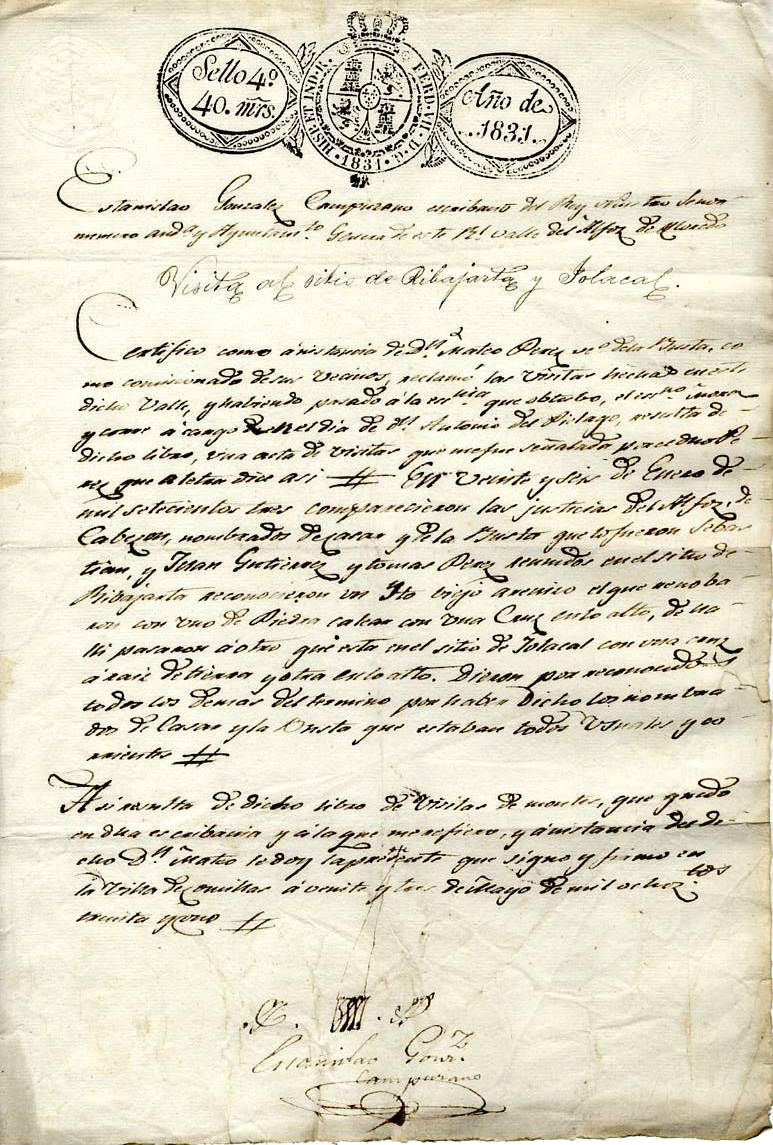 Sello 4º
40. mrs.
HISP. ET IND. R. FERD. VII. D. G. 1831.
Año de
1831.
Estanislao Gonzalez Campuzano escribano del Rey nuestro Señor
numero and.ª y Ayuntam.to General de este R.l Valle del Alfoz de Lloredo
Visita al sitio de Ribajarta y Jolacal.
Certifico como á instancia de D.n Mateo Perez v.º de la Busta, co-
mo comisionado de sus vecinos, reclamó las Visitas hechas en este
dicho Valle, y habiendo pasado á la que obtubo, el
y corre á cargo en el dia de D.n Antonio del Pielago, resulta de
dicho libro, una acta de visitas que me fue señalada por el dho Pe-
rez que a letra dice asi # En Veinte y seis de Enero de
mil setecientos tres comparecieron las justicias del Alfoz, de
Cabezon, nombrados de Casar y de la Busta que lo fueron Sebas
tian, y Juan Gutierrez y tomas Perez reunidos en el sitio de
Ribajarta reconocieron un Yto viejo arenico el que renoba-
ron con uno de Piedra calear con una Cruz en lo alto, de ha-
lli pasaron á otro que esta en el sitio de Jolacal con una cruz
á raiz de tierra y otra en lo alto. Dieron por reconocidos
todos los demas del termino por haber Dicho los nombra-
dos de Casar y la Busta que estaban todos Vsuales y co-
rrientes #
Asi resulta de dicho libro de Visitas de montes, que quedo
en dha escribania y á la que me refiero, y á instancia del di-
cho D.n Mateo le doy la presente que signo y firmo en
la Villa de Comillas á veinte y tres de Mayo de mil ochoz.tos
treinta y uno #
Estanislao Gonz.z
Campuzano